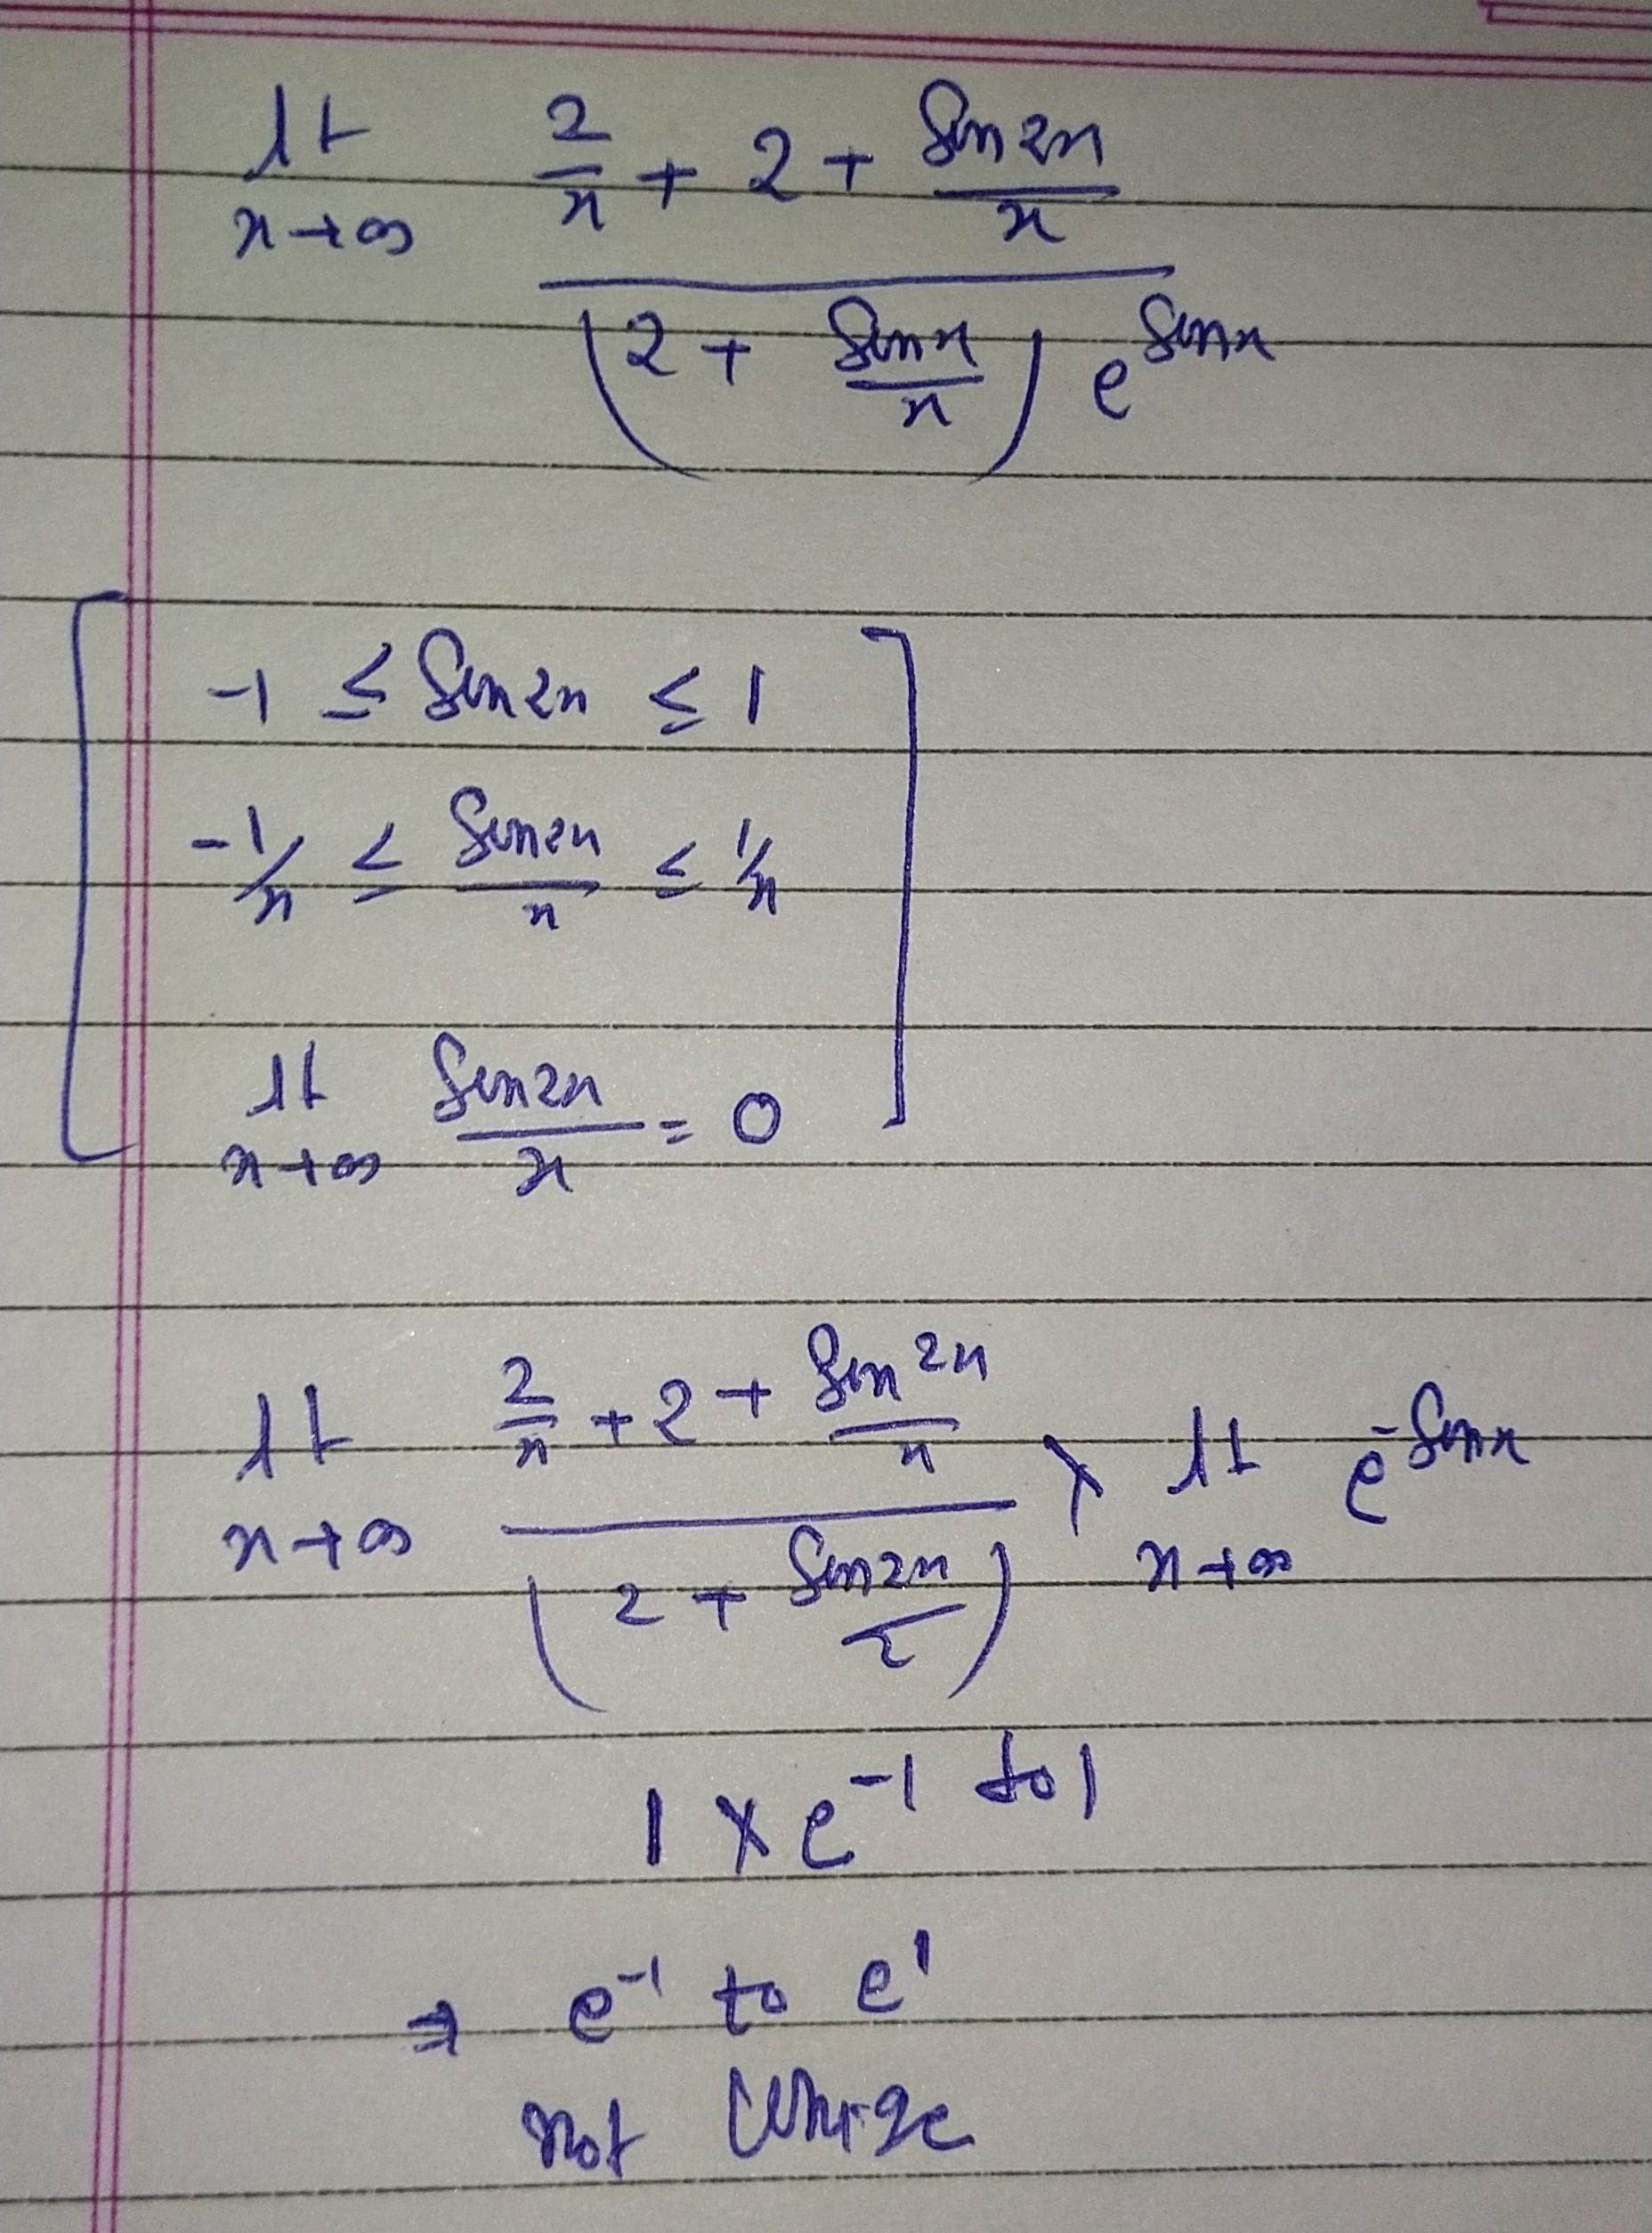 lt x→∞ (2/x + 2 + Sin2x/x) / ((2 + Sinx/x) e^Sinx)
[ -1 ≤ Sin2x ≤ 1
-1/x ≤ Sin2x/x ≤ 1/x
lt x→∞ Sin2x/x = 0 ]
lt x→∞ (2/x + 2 + Sin2x/x) / (2 + Sin2x/2) × lt x→∞ e^-Sinx
1 × e^-1 to 1
⇒ e^-1 to e^1
not unique